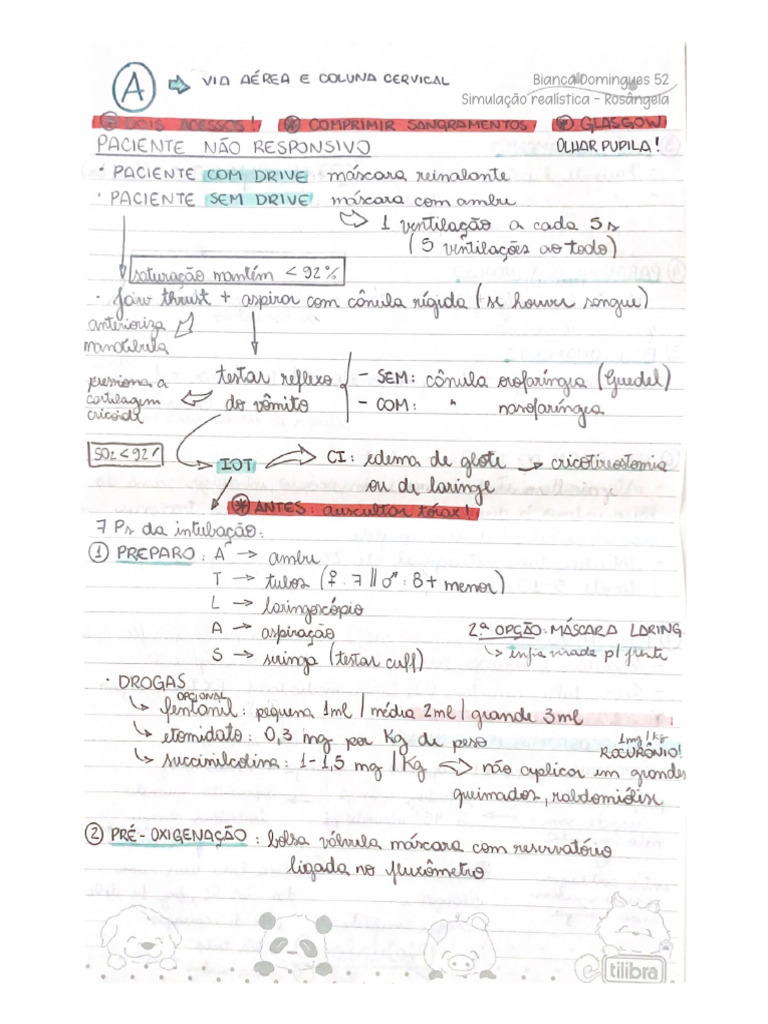 A → VIA AÉREA E COLUNA CERVICAL
Bianca Domingues 52
Simulação realística - Rosângela
* DOIS ACESSOS! * COMPRIMIR SANGRAMENTOS * GLASGOW
PACIENTE NÃO RESPONSIVO OLHAR PUPILA!
• PACIENTE COM DRIVE máscara reinalante
• PACIENTE SEM DRIVE máscara com ambu
1 ventilação a cada 5s
(5 ventilações ao todo)
saturação mantém < 92%
• jaw thrust + aspirar com cânula rígida (se houver sangue)
anterioriza
mandíbula
testar reflexo
do vômito
- SEM: cânula orofaríngia (Guedel)
- COM: " nasofaríngia
pressiona a
cartilagem
cricoide
SO2 < 92%
IOT
CI: edema de glote → cricotireostomia
ou de laringe
* ANTES: auscultar tórax!
7 Ps da intubação:
① PREPARO: A → ambu
T → tubos (♀: 7 || ♂: 8 + menor)
L → laringoscópio
A → aspiração
S → seringa (testar cuff)
2ª OPÇÃO: MÁSCARA LARING
↳ enfia virada p/ frente
• DROGAS
OPCIONAL
↳ fentanil: pequena 1ml | média 2ml | grande 3ml
↳ etomidato: 0,3 mg por Kg de peso
1mg/kg
ROCURÔNIO!
↳ succinilcolina: 1-1,5 mg/Kg ⇒ não aplicar em grandes
queimados, rabdomiólise
② PRÉ-OXIGENAÇÃO: bolsa válvula máscara com reservatório
ligada no fluxômetro
tilibra